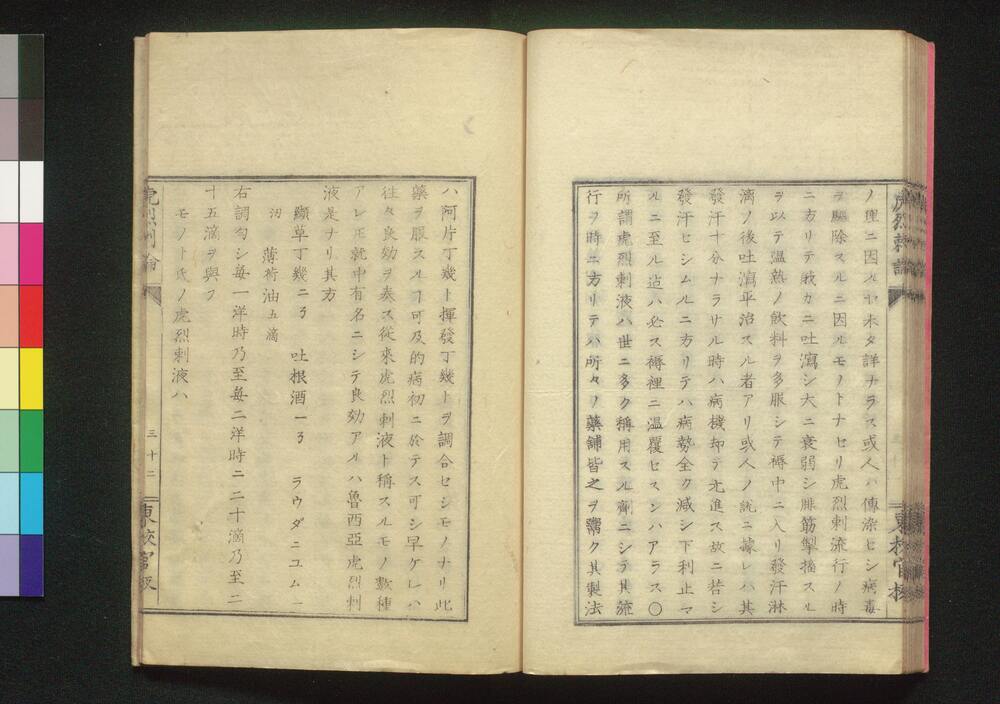 虎烈剌論
東校官板
ノ輿ニ因ルヤ未タ詳ナラス或人ハ傳染セシ病毒
ヲ驅除スルニ因ルモノトナセリ虎烈剌流行ノ時
ニ方リテ敗カニ吐瀉シ大ニ衰弱シ腓筋掣搐スル
ヲ以テ温熱ノ飲料ヲ多服シテ褥中ニ入リ發汗淋
漓ノ後吐瀉平治スル者アリ或人ノ説ニ據レハ其
發汗十分ナラサル時ハ病機却テ亢進ス故ニ若シ
發汗セシムルニ方リテハ病勢全ク减シ下利止マ
ルニ至ル迠ハ必ス褥裡ニ温覆セスンハアラス〇
所謂虎烈剌液ハ世ニ多ク稱用スル劑ニシテ其流
行ヲ時ニ方リテハ所々ノ藥舖皆之ヲ鬻ク其製法
ハ阿片丁幾ト揮發丁幾トヲ調合セシモノナリ此
藥ヲ服スルヿ可及的病初ニ於テス可シ早ケレハ
往々良効ヲ奏ス從來虎烈剌液ト稱スルモノ數種
アレ𪜈就中有名ニシテ良効アルハ魯西亞虎烈剌
液是ナリ其方
纈草丁幾二ろ 吐根酒一ろ ラウダニユム一
薄荷油五滴
右調匀シ毎一洋時乃至毎二洋時ニ二十滴乃至二
十五滴ヲ與フ
モノト氏ノ虎烈剌液ハ
虎烈剌論
三十二
東校官板